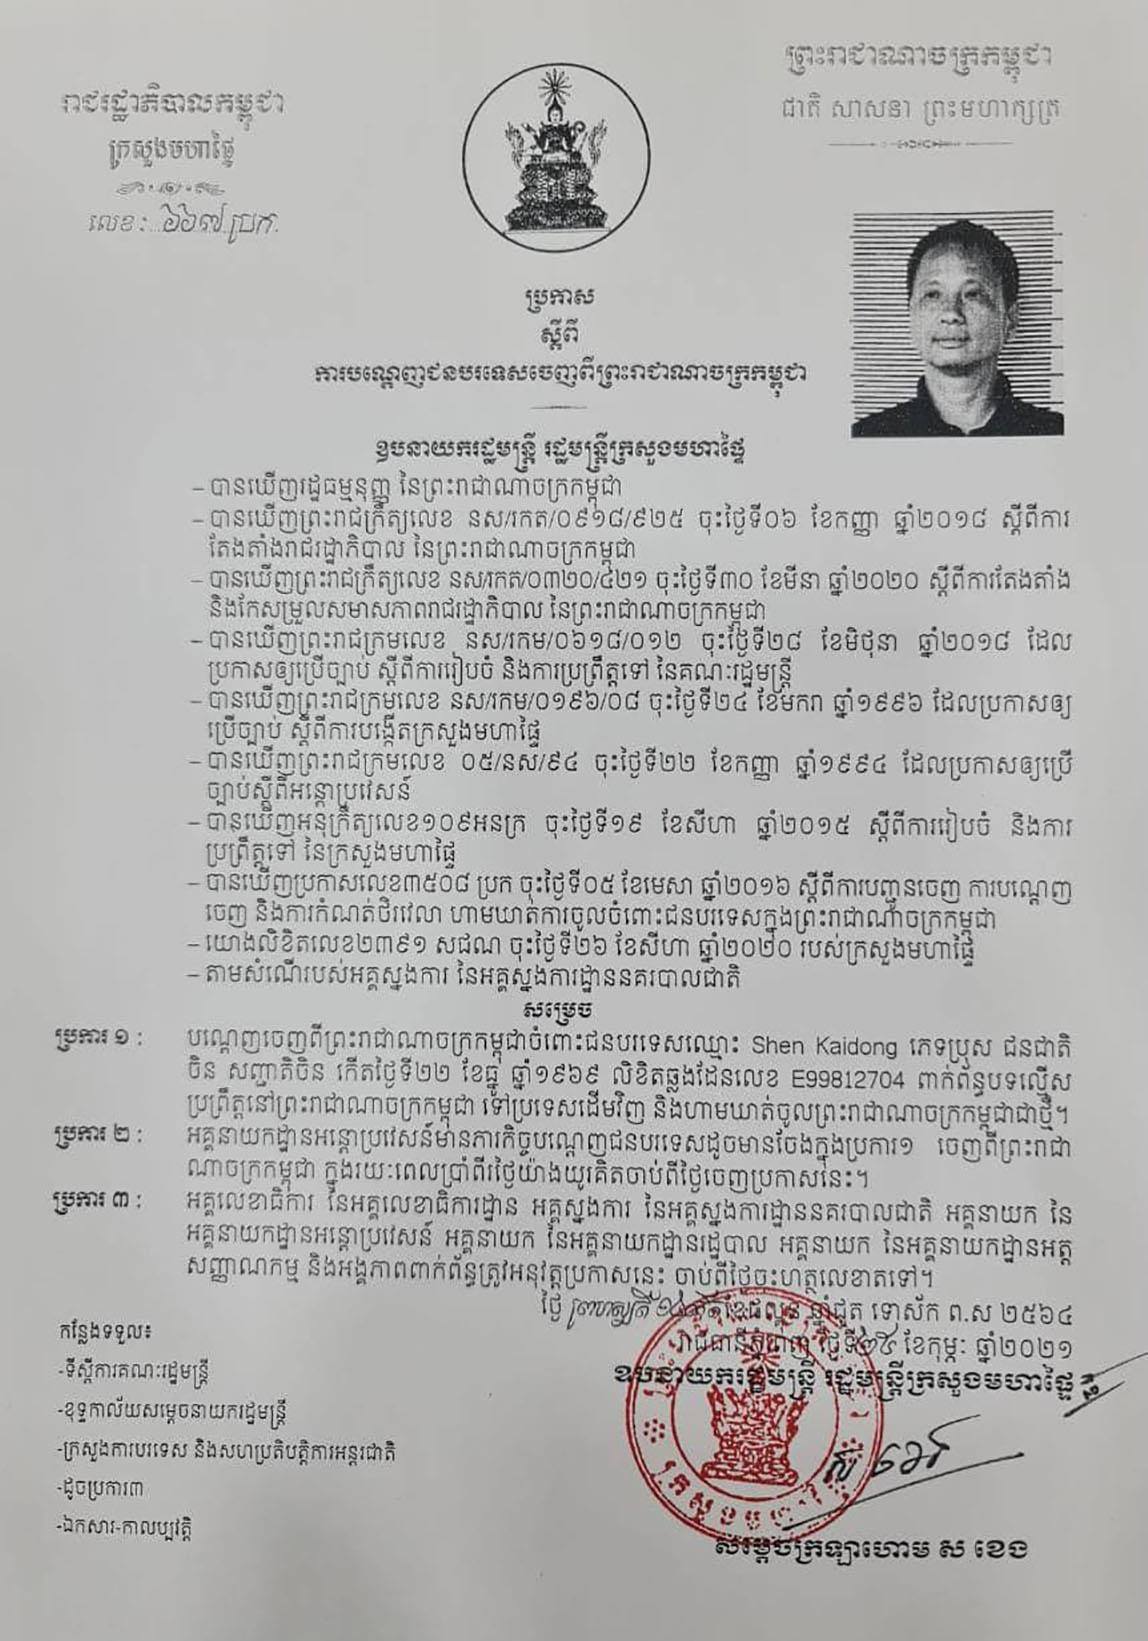 ព្រះរាជាណាចក្រកម្ពុជា
ជាតិ សាសនា ព្រះមហាក្សត្រ
រាជរដ្ឋាភិបាលកម្ពុជា
ក្រសួងមហាផ្ទៃ
លេខ : ៦៦៧ ប្រក.
ប្រកាស
ស្តីពី
ការបណ្តេញជនបរទេសចេញពីព្រះរាជាណាចក្រកម្ពុជា
ឧបនាយករដ្ឋមន្ត្រី រដ្ឋមន្ត្រីក្រសួងមហាផ្ទៃ
– បានឃើញរដ្ឋធម្មនុញ្ញ នៃព្រះរាជាណាចក្រកម្ពុជា
– បានឃើញព្រះរាជក្រឹត្យលេខ នស/រកត/០៩១៨/៩២៥ ចុះថ្ងៃទី០៦ ខែកញ្ញា ឆ្នាំ២០១៨ ស្តីពីការ
តែងតាំងរាជរដ្ឋាភិបាល នៃព្រះរាជាណាចក្រកម្ពុជា
– បានឃើញព្រះរាជក្រឹត្យលេខ នស/រកត/០៣២០/៤២១ ចុះថ្ងៃទី៣០ ខែមីនា ឆ្នាំ២០២០ ស្តីពីការតែងតាំង
និងកែសម្រួលសមាសភាពរាជរដ្ឋាភិបាល នៃព្រះរាជាណាចក្រកម្ពុជា
– បានឃើញព្រះរាជក្រមលេខ នស/រកម/០៦១៨/០១២ ចុះថ្ងៃទី២៨ ខែមិថុនា ឆ្នាំ២០១៨ ដែល
ប្រកាសឲ្យប្រើច្បាប់ ស្តីពីការរៀបចំ និងការប្រព្រឹត្តទៅ នៃគណៈរដ្ឋមន្ត្រី
– បានឃើញព្រះរាជក្រមលេខ នស/រកម/០១៩៦/០៨ ចុះថ្ងៃទី២៤ ខែមករា ឆ្នាំ១៩៩៦ ដែលប្រកាសឲ្យ
ប្រើច្បាប់ ស្តីពីការបង្កើតក្រសួងមហាផ្ទៃ
– បានឃើញព្រះរាជក្រមលេខ ០៥/នស/៩៤ ចុះថ្ងៃទី២២ ខែកញ្ញា ឆ្នាំ១៩៩៤ ដែលប្រកាសឲ្យប្រើ
ច្បាប់ស្តីពីអន្តោប្រវេសន៍
– បានឃើញអនុក្រឹត្យលេខ១០៩អនក្រ ចុះថ្ងៃទី១៩ ខែសីហា ឆ្នាំ២០១៥ ស្តីពីការរៀបចំ និងការ
ប្រព្រឹត្តទៅ នៃក្រសួងមហាផ្ទៃ
– បានឃើញប្រកាសលេខ៣៥០៨ ប្រក ចុះថ្ងៃទី០៥ ខែមេសា ឆ្នាំ២០១៦ ស្តីពីការបញ្ជូនចេញ ការបណ្តេញ
ចេញ និងការកំណត់ថិរវេលា ហាមឃាត់ការចូលចំពោះជនបរទេសក្នុងព្រះរាជាណាចក្រកម្ពុជា
– យោងលិខិតលេខ២៣៩១ សជណ ចុះថ្ងៃទី២៦ ខែសីហា ឆ្នាំ២០២០ របស់ក្រសួងមហាផ្ទៃ
– តាមសំណើរបស់អគ្គស្នងការ នៃអគ្គស្នងការដ្ឋាននគរបាលជាតិ
សម្រេច
ប្រការ ១ : បណ្តេញចេញពីព្រះរាជាណាចក្រកម្ពុជាចំពោះជនបរទេសឈ្មោះ Shen Kaidong ភេទប្រុស ជនជាតិ
ចិន សញ្ជាតិចិន កើតថ្ងៃទី២២ ខែធ្នូ ឆ្នាំ១៩៦៩ លិខិតឆ្លងដែនលេខ E99812704 ពាក់ព័ន្ធបទល្មើស
ប្រព្រឹត្តនៅព្រះរាជាណាចក្រកម្ពុជា ទៅប្រទេសដើមវិញ និងហាមឃាត់ចូលព្រះរាជាណាចក្រកម្ពុជាជាថ្មី។
ប្រការ ២ : អគ្គនាយកដ្ឋានអន្តោប្រវេសន៍មានភារកិច្ចបណ្តេញជនបរទេសដូចមានចែងក្នុងប្រការ១ ចេញពីព្រះរាជា
ណាចក្រកម្ពុជា ក្នុងរយៈពេលប្រាំពីរថ្ងៃយ៉ាងយូរគិតចាប់ពីថ្ងៃចេញប្រកាសនេះ។
ប្រការ ៣ : អគ្គលេខាធិការ នៃអគ្គលេខាធិការដ្ឋាន អគ្គស្នងការ នៃអគ្គស្នងការដ្ឋាននគរបាលជាតិ អគ្គនាយក នៃ
អគ្គនាយកដ្ឋានអន្តោប្រវេសន៍ អគ្គនាយក នៃអគ្គនាយកដ្ឋានរដ្ឋបាល អគ្គនាយក នៃអគ្គនាយកដ្ឋានអត្ត
សញ្ញាណកម្ម និងអង្គភាពពាក់ព័ន្ធត្រូវអនុវត្តប្រកាសនេះ ចាប់ពីថ្ងៃចុះហត្ថលេខាតទៅ។
ថ្ងៃ ព្រហស្បតិ៍ ខែផល្គុន ឆ្នាំជូត ទោស័ក ព.ស ២៥៦៤
រាជធានីភ្នំពេញ ថ្ងៃទី ខែកុម្ភៈ ឆ្នាំ២០២១
ឧបនាយករដ្ឋមន្ត្រី រដ្ឋមន្ត្រីក្រសួងមហាផ្ទៃ
ក្រសួងមហាផ្ទៃ
ស ខេង
សម្តេចក្រឡាហោម ស ខេង
កន្លែងទទួល៖
-ទីស្តីការគណៈរដ្ឋមន្ត្រី
-ខុទ្ទកាល័យសម្តេចនាយករដ្ឋមន្ត្រី
-ក្រសួងការបរទេស និងសហប្រតិបត្តិការអន្តរជាតិ
-ដូចប្រការ៣
-ឯកសារ-កាលប្បវត្តិ